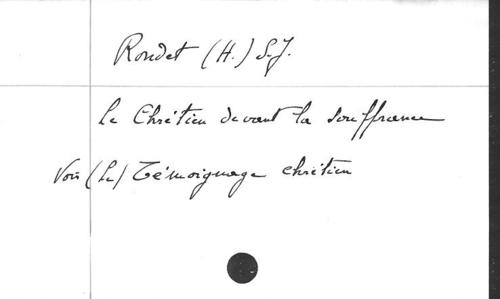 Rondet (H.) S.J.
Le Chrétien devant la souffrance
Voir (Le) Témoignage chrétien